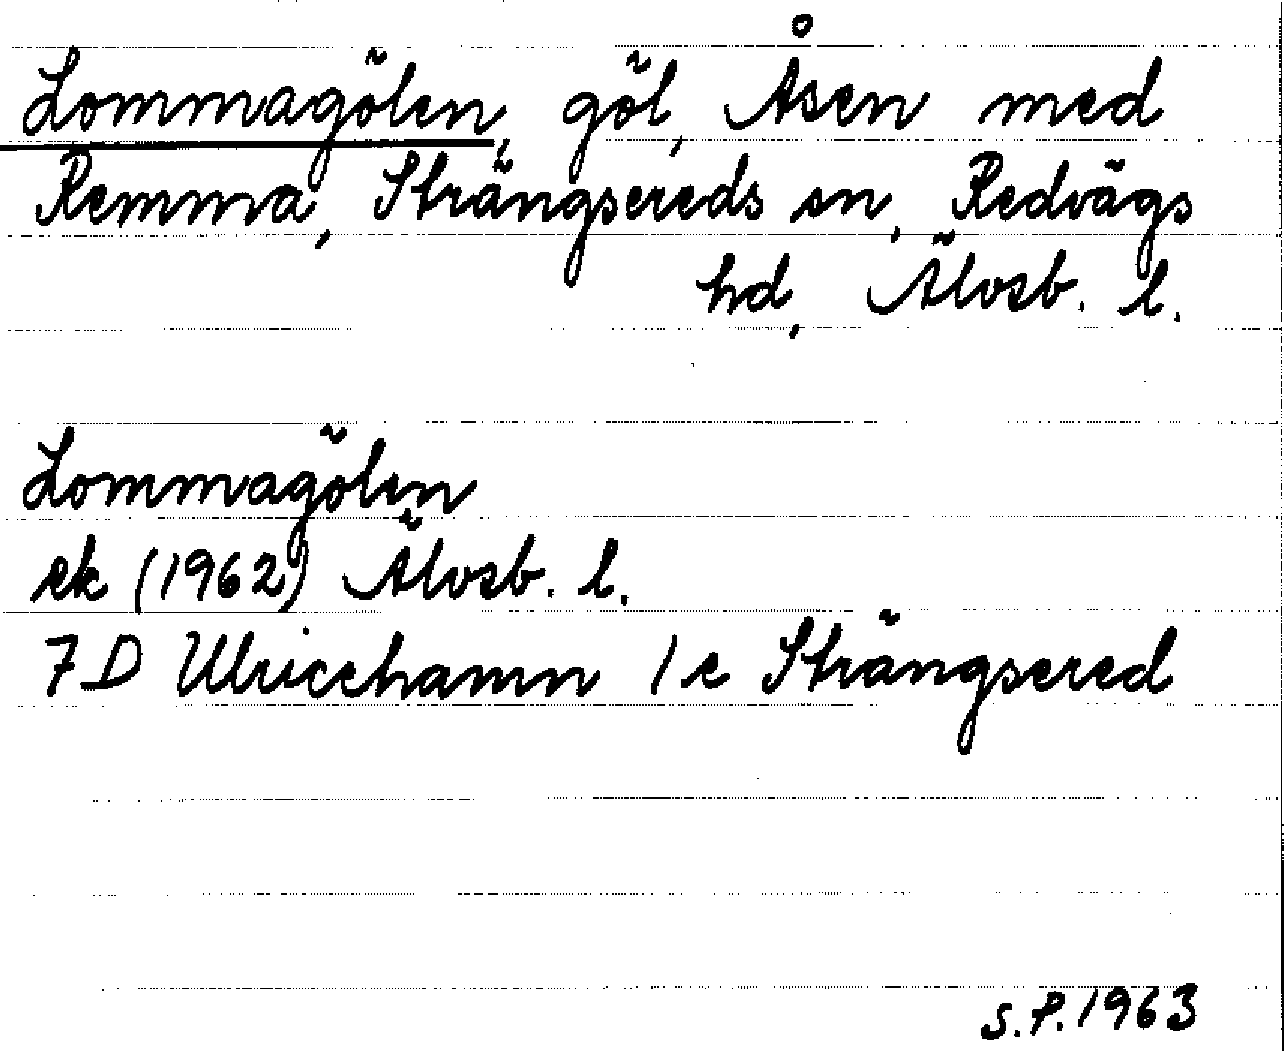 Lommagölen, göl, Åsen med
Remma, Strängsereds sn, Redvägs
hd, Älvsb. l.
Lommagölen
ek (1962) Älvsb. l.
7D Ulricehamn 1e Strängsered
S.P. 1963